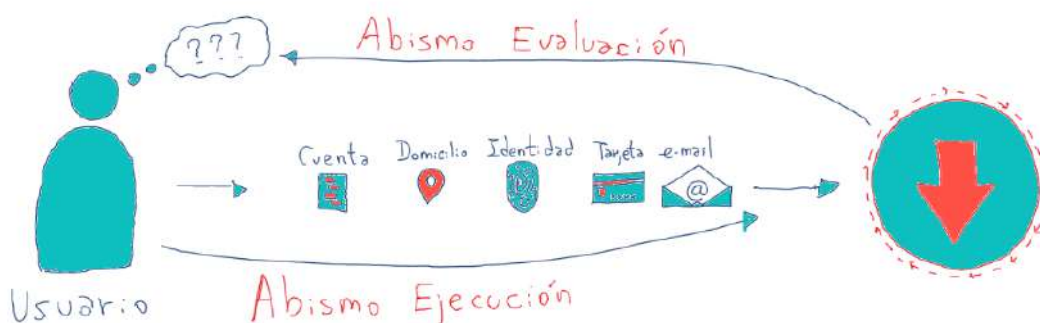 ???
Abismo Evaluación
Cuenta Domicilio Identidad Tarjeta e-mail
@
Usuario
Abismo Ejecución